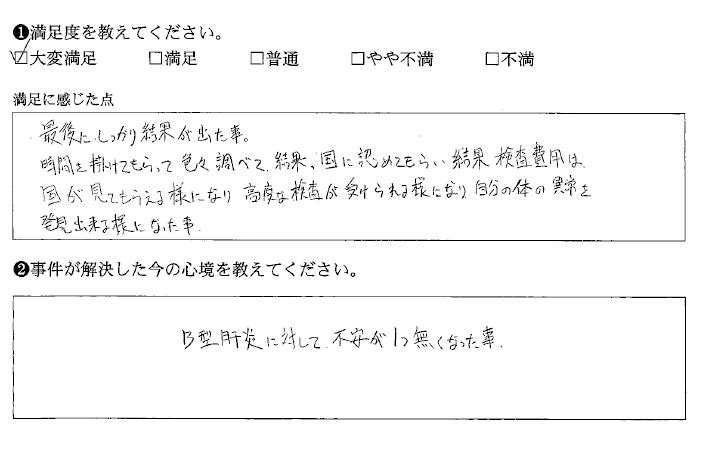 ❶満足度を教えてください。
☑大変満足 □満足 □普通 □やや不満 □不満
満足に感じた点
最後に、しっかり結果が出た事。
時間を掛けてもらって色々調べて、結果、国に認めてもらい結果検査費用は、
国が見てもらえる様になり高度な検査が受けられる様になり自分の体の異常を
発見出来る様になった事.
❷事件が解決した今の心境を教えてください。
B型肝炎に対して、不安が1つ無くなった事.